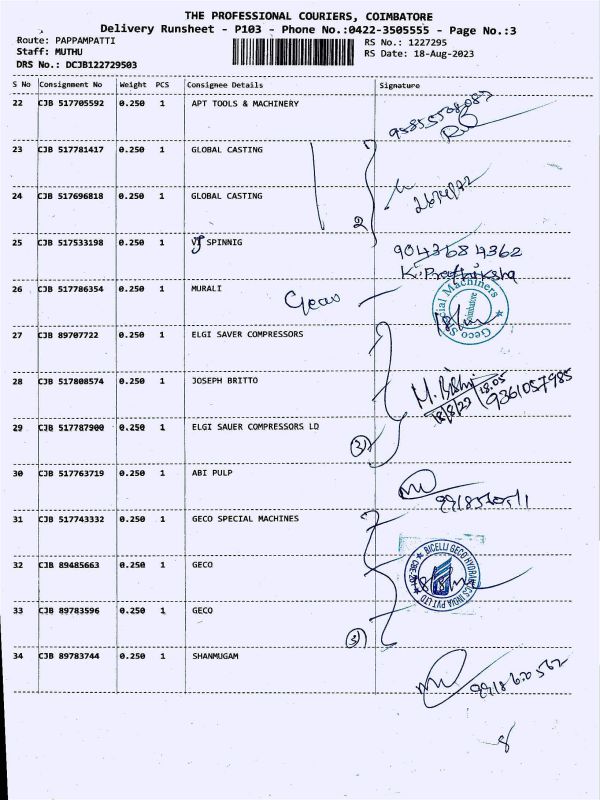 THE PROFESSIONAL COURIERS, COIMBATORE
Delivery Runsheet - P103 - Phone No.:0422-3505555 - Page No.:3
Route: PAPPAMPATTI RS No.: 1227295
Staff: MUTHU RS Date: 18-Aug-2023
DRS No.: DCJB122729503
S No Consignment No Weight PCS Consignee Details Signature
22 CJB 517705592 0.250 1 APT TOOLS & MACHINERY
23 CJB 517781417 0.250 1 GLOBAL CASTING
24 CJB 517696818 0.250 1 GLOBAL CASTING
2
25 CJB 517533198 0.250 1 VJ SPINNIG 9043684362
K. Prathiksha
26 CJB 517786354 0.250 1 MURALI Geco
Geco Special Machiners
Coimbatore
27 CJB 89707722 0.250 1 ELGI SAVER COMPRESSORS
28 CJB 517808574 0.250 1 JOSEPH BRITTO
18/8/23 18.05 9361057985
29 CJB 517787900 0.250 1 ELGI SAUER COMPRESSORS LD
3
30 CJB 517763719 0.250 1 ABI PULP
31 CJB 517743332 0.250 1 GECO SPECIAL MACHINES
32 CJB 89485663 0.250 1 GECO
BICELLI GECO HYDRINES INDIA PVT LTD
33 CJB 89783596 0.250 1 GECO
3
34 CJB 89783744 0.250 1 SHANMUGAM
8